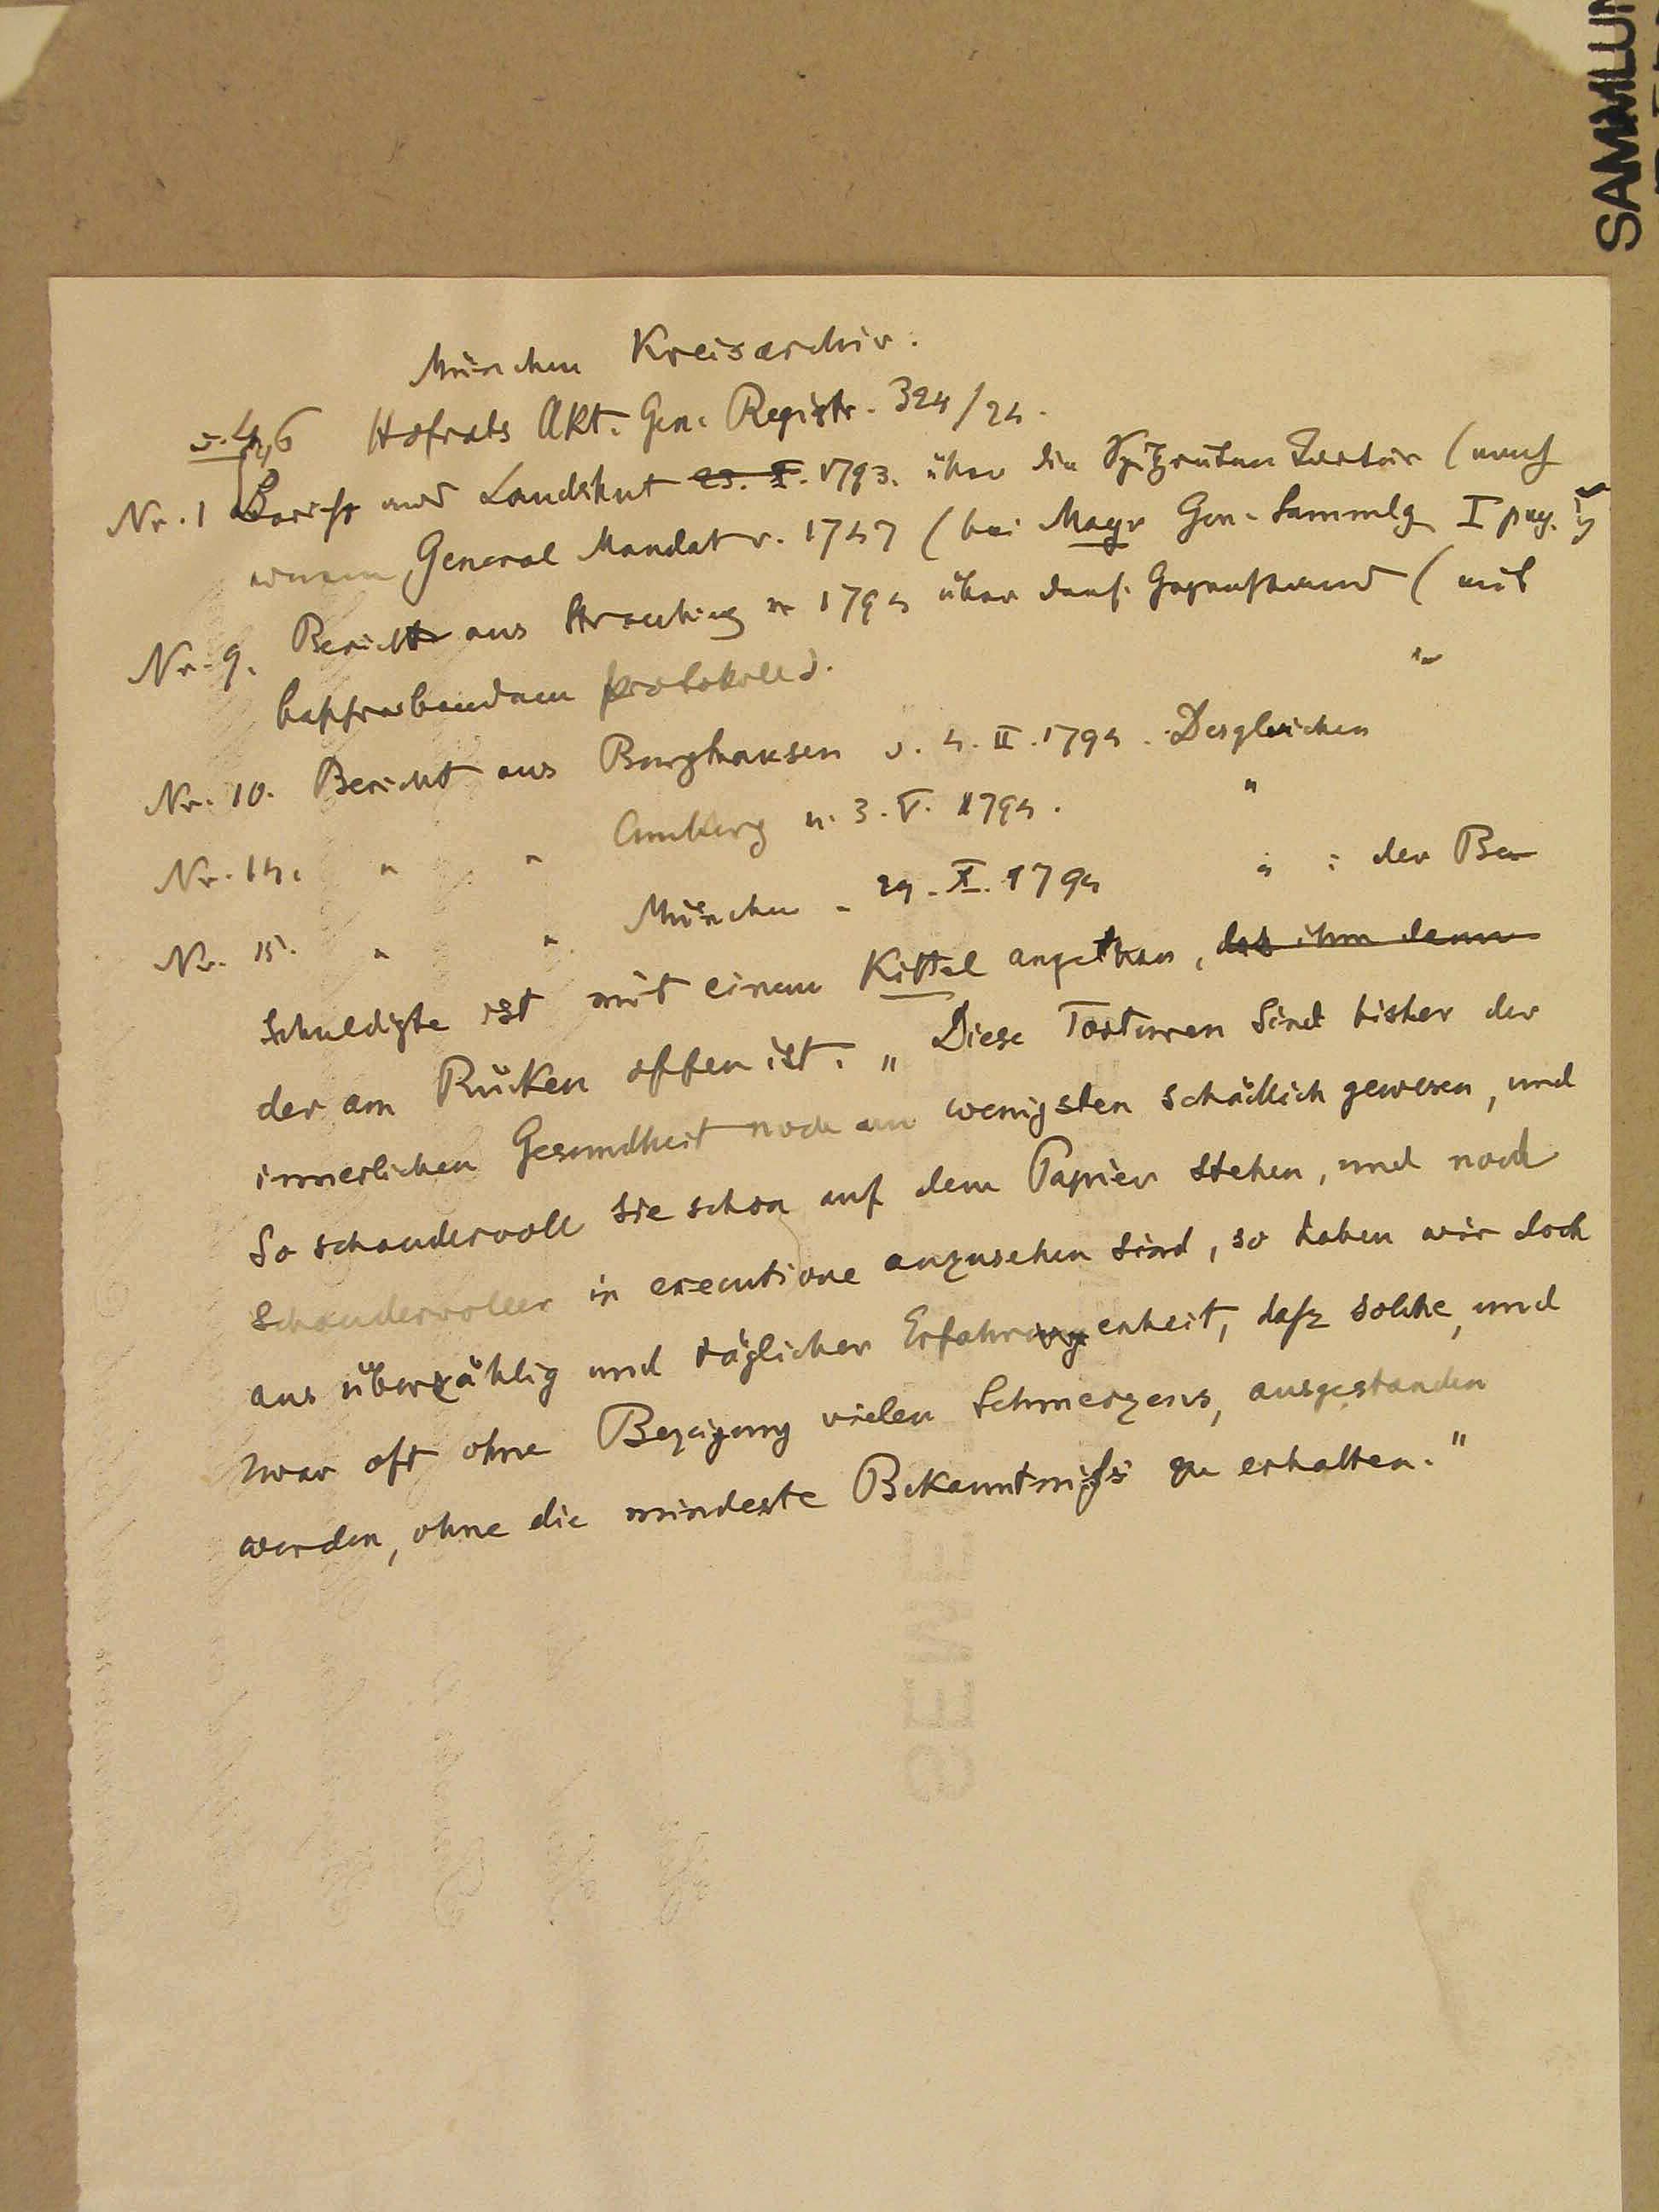 SAMMLUN
München Kreisarchiv.
Hofrats Akt. Gen. Registr. 324/24.
Nr. 1 Bericht aus Landshut 23. X. 1793. über die Spitzruten Tortur (nach
General Mandat v. 1747 (bei Mayr Gen. Sammlg I pag.
Nr. 9. Bericht aus Straubing v 1794 über dens. Gegenstand (mit
protokolle).
Nr. 10. Bericht aus Burghausen v. 4. II. 1794. Desgleichen "
Nr. 14. " " Amberg v. 3. V. 1794. "
Nr. 15. " " München - 24. X. 1794 " : der Be
schuldigte ist mit einem Kittel angethan, das ihm dann
der am Rücken offen ist. „Diese Torturen sind bisher der
innerlichen Gesundheit noch am wenigsten schädlich gewesen, und
So schaudervoll sie schon auf dem Papier stehen, und noch
schaudervoller in executione anzusehen sind, so haben wir doch
aus überzählig und täglicher Erfahrungenheit, dasz solche, und
zwar oft ohne Bezeigung vielen Schmerzens, ausgestanden
worden, ohne die mindeste Bekanntniss zu erhalten."